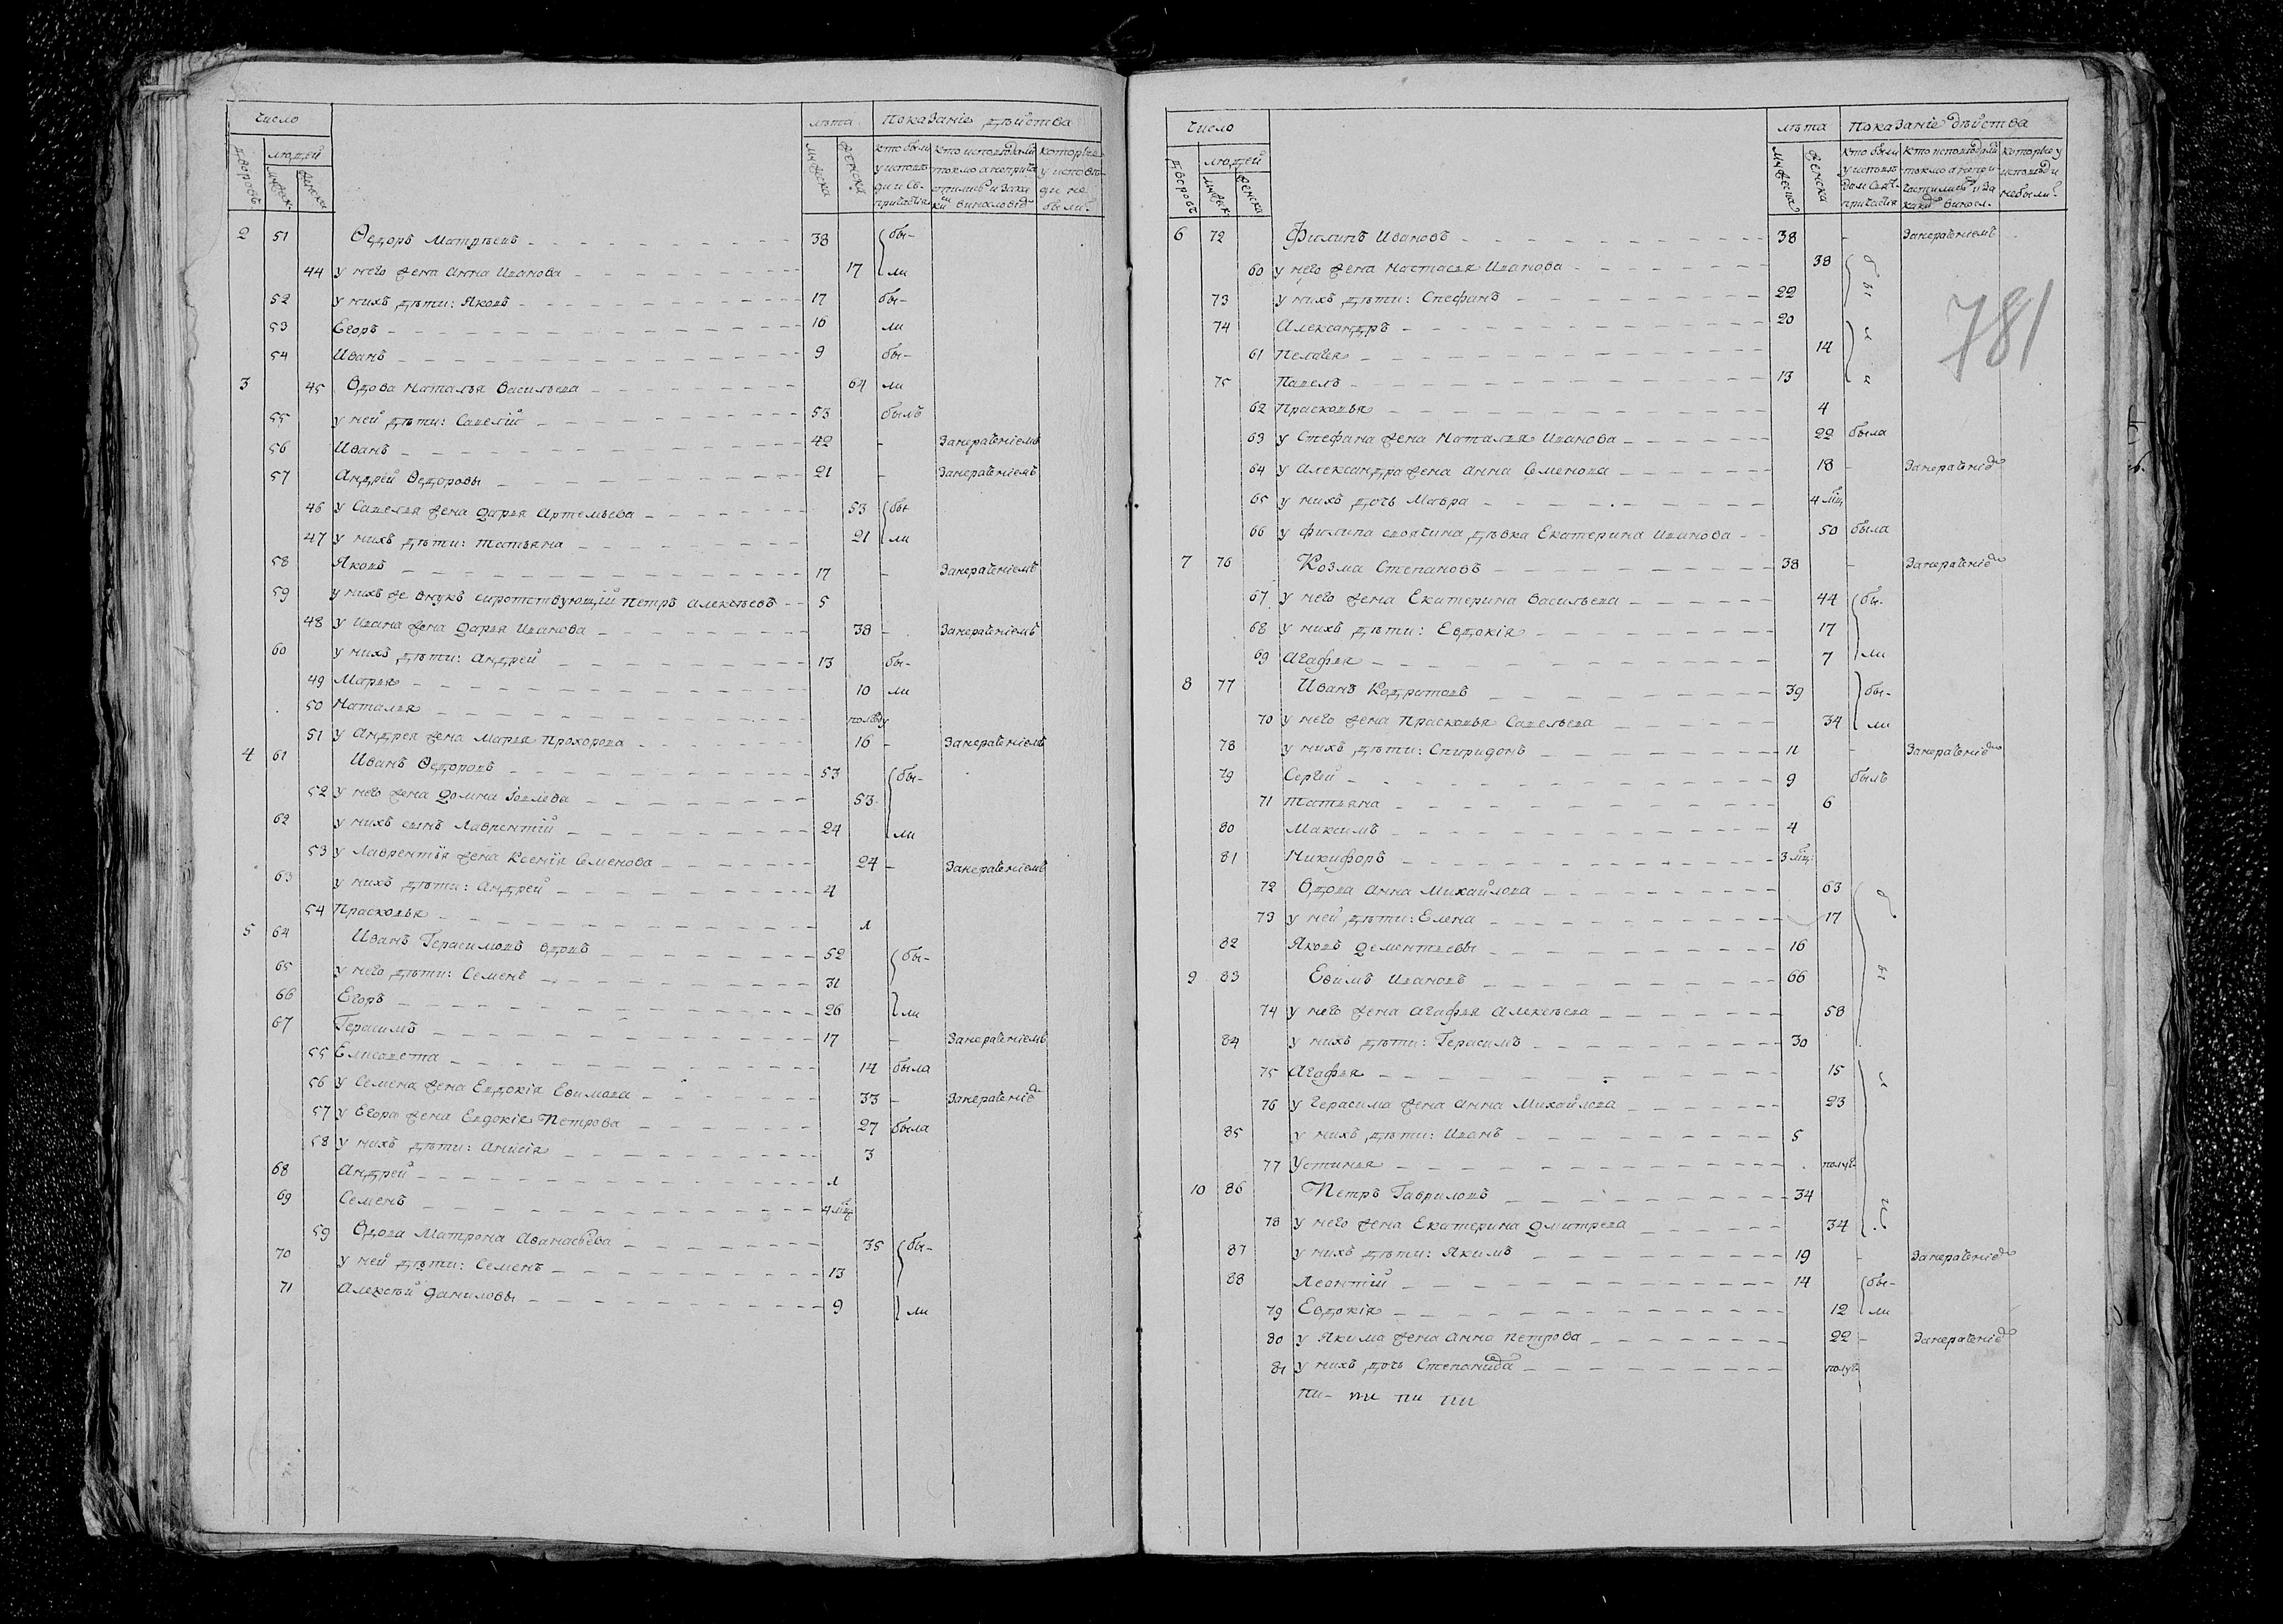 число лѣта показаніе дѣйства
дворовъ людей мужеска женска кто были у исповѣди и св: причастія кто исповѣдались токмо а не причастились и за каким винословіем которые у исповѣди не были
2 51 Ѳедоръ Матвѣевъ 38 бы-
44 у него жена Анна Иванова 17 ли
52 у нихъ дѣти: Яковъ 17 бы-
53 Егоръ 16 ли
54 Иванъ 9 бы-
3 45 Вдова Наталья Васильева 64 ли
55 у ней дѣти: Савелій 53 былъ
56 Иванъ 42 - Занерачениемъ
57 Андрей Ѳедоровы 21 - Занерачениемъ
46 у Савелья жена Дарья Артемьева 53 бы
47 у нихъ дѣти: Татьяна 21 ли
58 Яковъ 17 - Занерачениемъ
59 у нихъ же внукъ сиротствующій Петръ Алексѣевъ 5
48 у Ивана жена Дарья Иванова 38 - Занерачениемъ
60 у нихъ дѣти: Андрей 13 бы-
49 Марья 10 ли
50 Наталья полгоду
51 у Андрея жена Марья Прохорова 16 - Занерачениемъ
4 61 Иванъ Ѳедоровъ 53 бы-
52 у него жена Домна Іовлева 53
62 у нихъ сынъ Лаврентій 24 ли
53 у Лаврентья жена Ксенія Семенова 24 - Занерачениемъ
63 у нихъ дѣти: Андрей 4
54 Прасковья 1
5 64 Иванъ Герасимовъ вдовъ 52 бы-
65 у него дѣти: Семенъ 31
66 Егоръ 26 ли
67 Герасимъ 17 - Занерачениемъ
55 Елисавета 14 была
56 у Семена жена Евдокія Еѳимова 33 - Занерачениемъ
57 у Егора жена Евдокія Петрова 27 была
58 у нихъ дѣти: Анисія 3
68 Андрей 1
69 Семенъ 4 мѣц
59 Вдова Матрона Аѳанасьева 35 бы-
70 у ней дѣти: Семенъ 13
71 Алексѣй Даниловы 9 ли
число лѣта Показаніе дѣйства
дворовъ людей мужеска женска кто были у исповѣди и св: причастія кто исповѣдались токмо а не причастились и за каким винослов. которые у исповѣди не были
6 72 Филипъ Ивановъ 38 - Занерачениемъ
60 у него жена Настасья Иванова 38 бы
73 у нихъ дѣти: Стефанъ 22
74 Александръ 20
61 Пелагея 14 л
75 Павелъ 13 и
62 Прасковья 4
63 у Стефана жена Наталья Иванова 22 была
64 у Александра жена Анна Семенова 18 - Занерачениемъ
65 у нихъ дочь Мавра 4 мѣц
66 у Филипа своячина дѣвка Екатерина Иванова 50 была
7 76 Козма Степановъ 38 - Занерачениемъ
67 у него жена Екатерина Васильева 44 бы-
68 у нихъ дѣти: Евдокія 17
69 Агафья 7 ли
8 77 Иванъ Кодратовъ 39 бы-
70 у него жена Прасковья Савельева 34 ли
78 у нихъ дѣти: Спиридонъ 11 - Занерачениемъ
79 Сергей 9 былъ
71 Татьяна 6
80 Максимъ 4
81 Никифоръ 3 мѣц:
72 Вдова Анна Михайлова 63 б
73 у ней дѣти: Елена 17
82 Яковъ Дементьевы 16
9 83 Еѳимъ Ивановъ 66 ы
74 у него жена Агафья Алексѣева 58
84 у нихъ дѣти: Герасимъ 30
75 Агафья 15 л
76 у Герасима жена Анна Михайлова 23
85 у нихъ дѣти: Иванъ 5
77 Устинья полуг
10 86 Петръ Гавриловъ 34 и
78 у него жена Екатерина Дмитрева 34
87 у нихъ дѣти: Якимъ 19 - Занерачениемъ
88 Леонтій 14 бы-
79 Евдокія 12 ли
80 у Якима жена Анна Петрова 22 - Занерачениемъ
81 у нихъ дочь Степанида полуг
781